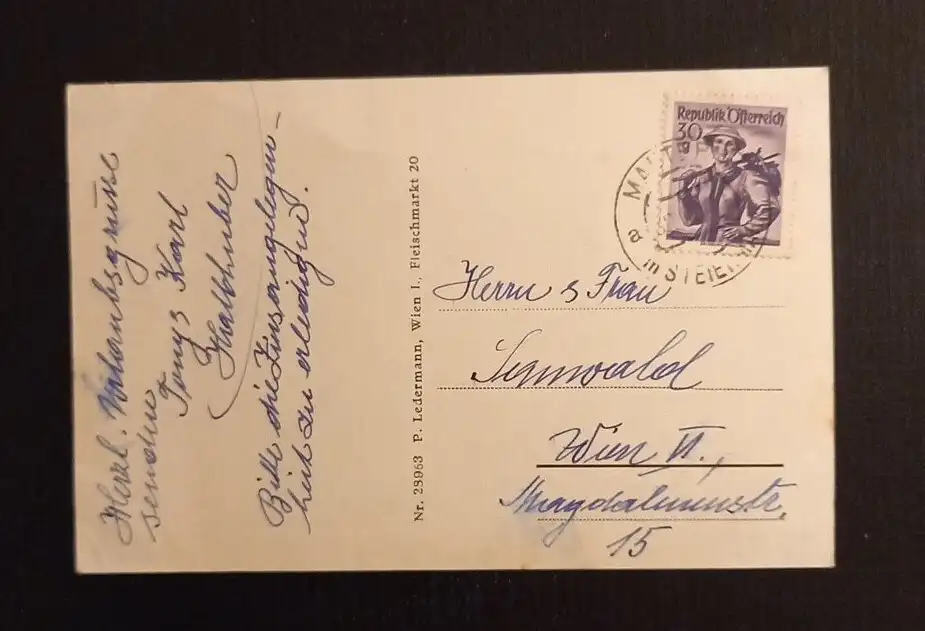 Herzl. Urlaubsgrüsse
senden
Karl
Bitte die Zinsangelegen-
heit zu erledigen.
Nr. 28963 P. Ledermann, Wien I., Fleischmarkt 20
Republik Österreich
30
a
STEIER
Herrn & Frau
Wien VI.,
Magdalenenstr.
15